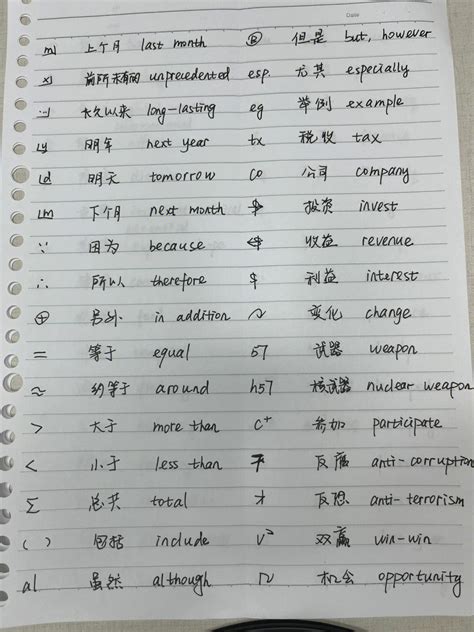 Date
m] 上个月 last month Ⓑ 但是 but, however
x] 前所未有的 unprecedented esp. 尤其 especially
长久以来 long-lasting eg 举例 example
[y 明年 next year tx 税收 tax
[d 明天 tomorrow co 公司 company
[m 下个月 next month 投资 invest
∵ 因为 because 收益 revenue
∴ 所以 therefore $ 利益 interest
⊕ 另外 in addition ~ 变化 change
= 等于 equal 57 武器 weapon
≈ 约等于 around h57 核武器 nuclear weapon
> 大于 more than c⁺ 参加 participate
< 小于 less than 反腐 anti-corruption
Σ 总共 total 反恐 anti-terrorism
( ) 包括 include v² 双赢 win-win
al 虽然 although 机会 opportunity